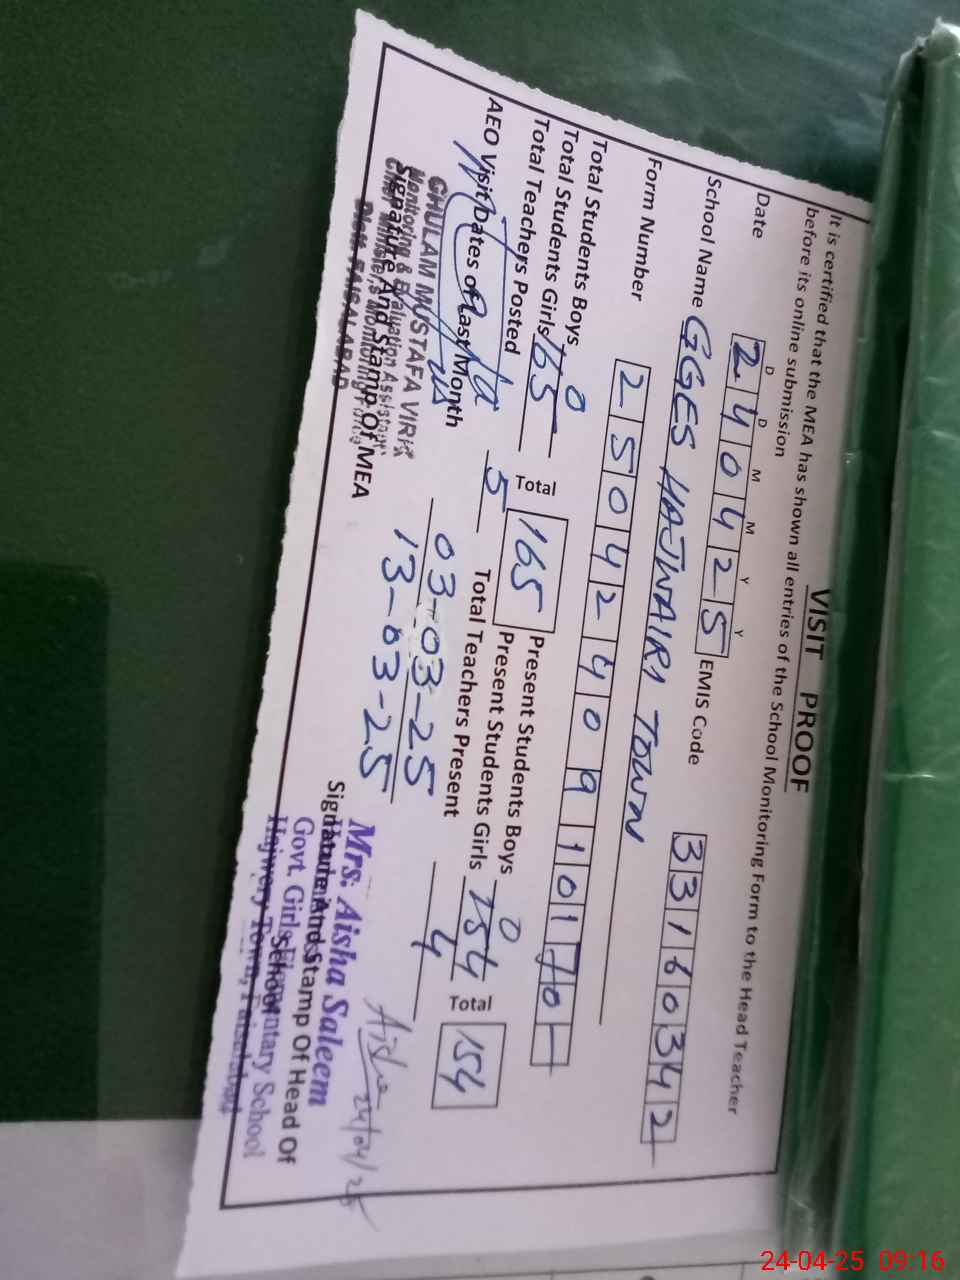 VISIT PROOF
It is certified that the MEA has shown all entries of the School Monitoring Form to the Head Teacher
before its online submission
D D M M Y Y
Date 240425 EMIS Code 33160342
School Name GGES HAJWAIRI TOWN
Form Number 25042409101701
Total Students Boys 0 Total 165 Present Students Boys 0 Total 154
Total Students Girls 165 Present Students Girls 154
Total Teachers Posted 5 Total Teachers Present 4
AEO Visit Dates of Last Month 03-03-25
13-03-25
GHULAM MUSTAFA VIRK
Monitoring & Evaluation Assistant
Chief Minister's Monitoring Force
Distt. FAISALABAD
Signature And Stamp of MEA
Aisha
24/04/25
Mrs: Aisha Saleem
Govt. Girls Elementary School
Hajwery Town, Faisalabad
Signature And Stamp Of Head Of
School
24-04-25 09:16